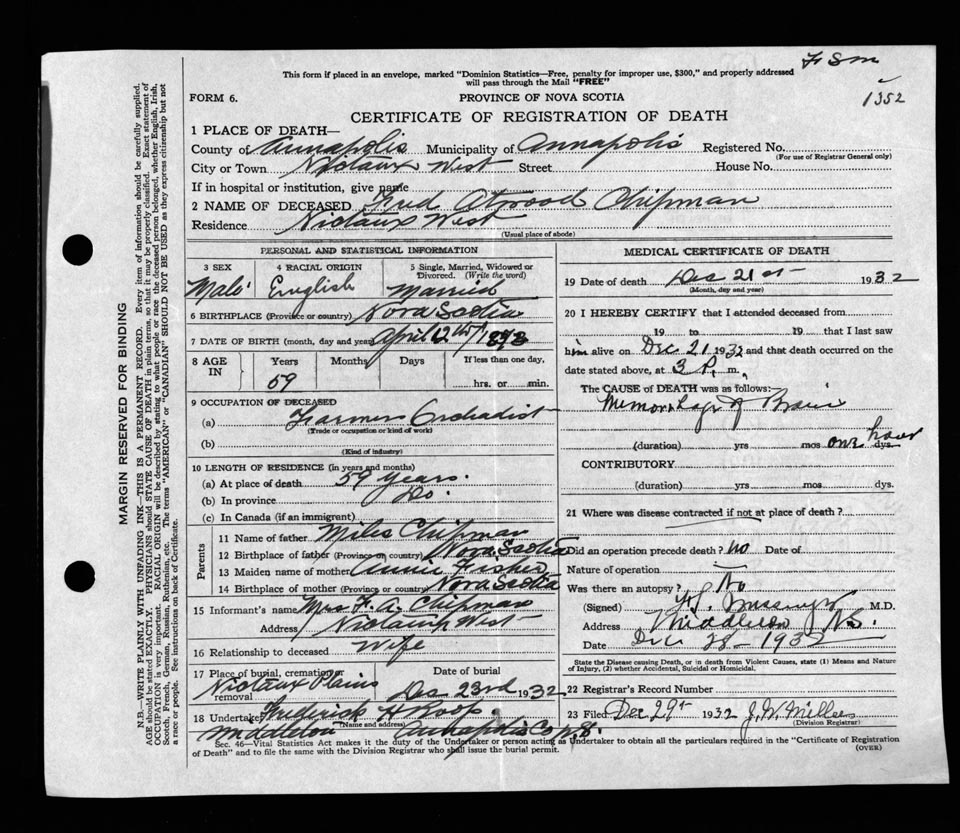 F S m
1352
This form if placed in an envelope, marked "Dominion Statistics—Free, penalty for improper use, $300," and properly addressed
will pass through the Mail "FREE"
FORM 6. PROVINCE OF NOVA SCOTIA
CERTIFICATE OF REGISTRATION OF DEATH
1 PLACE OF DEATH—
County of Annapolis Municipality of Annapolis Registered No.
(For use of Registrar General only)
City or Town Nictaux West Street House No.
If in hospital or institution, give name
2 NAME OF DECEASED Fred Atwood Chipman
Residence Nictaux West
(Usual place of abode)
PERSONAL AND STATISTICAL INFORMATION
3 SEX 4 RACIAL ORIGIN 5 Single, Married, Widowed or
Divorced. (Write the word)
Male English Married
6 BIRTHPLACE (Province or country) Nova Scotia
7 DATE OF BIRTH (month, day and year) April 12th 1873
8 AGE IN Years Months Days If less than one day,
59 hrs. or min.
9 OCCUPATION OF DECEASED
(a) Farmer Orchadist
(Trade or occupation or kind of work)
(b)
(Kind of industry)
10 LENGTH OF RESIDENCE (in years and months)
(a) At place of death 59 years.
(b) In province Do.
(c) In Canada (if an immigrant)
Parents
11 Name of father Miles Chipman
12 Birthplace of father (Province or country) Nova Scotia
13 Maiden name of mother Annie Fisher
14 Birthplace of mother (Province or country) Nova Scotia
15 Informant's name Mrs F. A. Chipman
Address Nictaux West
16 Relationship to deceased Wife
17 Place of burial, cremation or removal Date of burial
Nictaux Plains Dec 23rd 1932
18 Undertaker Frederick H Roop.
(Name and address)
Middleton Annapolis Co N.S.
MEDICAL CERTIFICATE OF DEATH
19 Date of death Dec 21st 1932
(Month, day and year)
20 I HEREBY CERTIFY that I attended deceased from
19 to 19 that I last saw
him alive on Dec 21 1932 and that death occurred on the
date stated above, at 3 P. m.
The CAUSE of DEATH was as follows:
Hemorrhage of Brain
(duration) yrs mos one hour dys.
CONTRIBUTORY
(duration) yrs. mos dys.
21 Where was disease contracted if not at place of death?
Did an operation precede death? no Date of
Nature of operation —
Was there an autopsy? No
(Signed) M.D.
Address Middleton N.S.
Date Dec 28 - 1932
State the Disease causing Death, or in death from Violent Causes, state (1) Means and Nature
of Injury, (2) whether Accidental, Suicidal or Homicidal.
22 Registrar's Record Number
23 Filed Dec 29th 1932
(Division Registrar)
Sec. 46—Vital Statistics Act makes it the duty of the Undertaker or person acting as Undertaker to obtain all the particulars required in the "Certificate of Registration
of Death" and to file the same with the Division Registrar who shall issue the burial permit. (OVER)
MARGIN RESERVED FOR BINDING
N.B.—WRITE PLAINLY WITH UNFADING INK—THIS IS A PERMANENT RECORD. Every item of information should be carefully supplied.
AGE should be stated EXACTLY. PHYSICIANS should STATE CAUSE OF DEATH in plain terms, so that it may be properly classified. Exact statement of
OCCUPATION is very important. RACIAL ORIGIN will be described by stating to what people or race the deceased person belonged, whether English, Irish,
Scotch, French, German, Russian, Ruthenian, etc. The terms "AMERICAN" or "CANADIAN" SHOULD NOT BE USED as they express citizenship but not
a race or people. See instructions on back of Certificate.